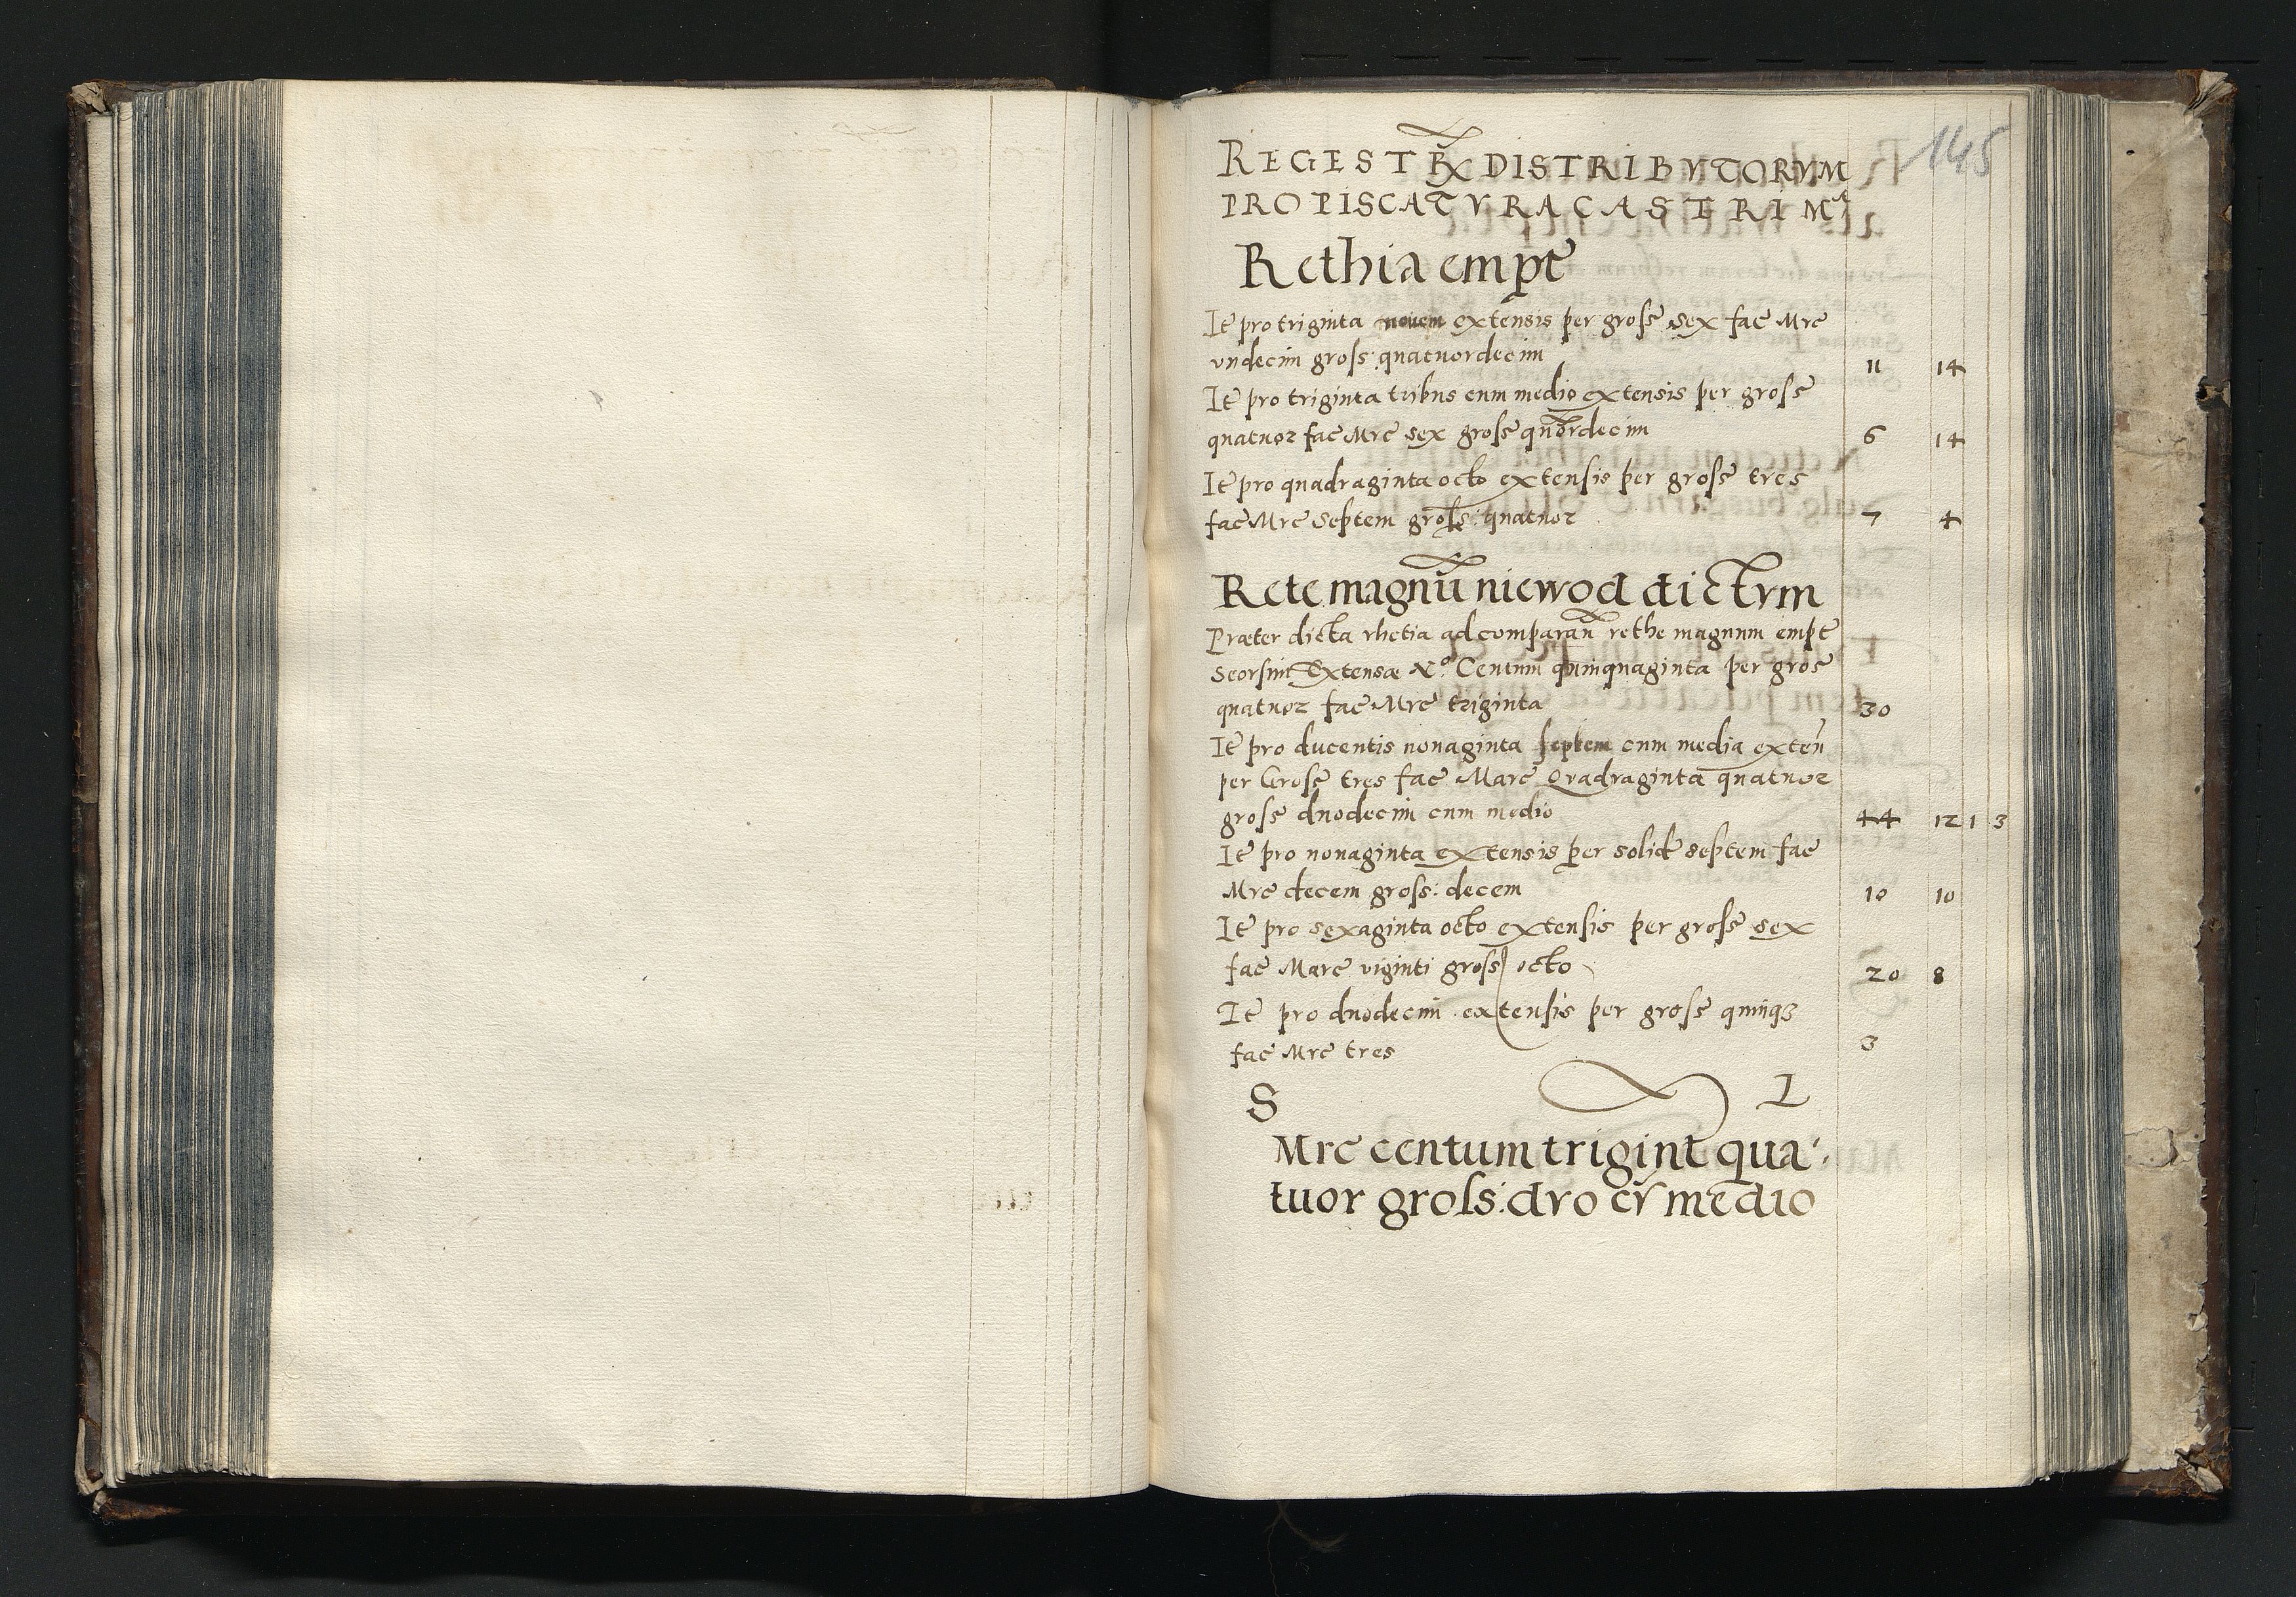 145
REGESTR DISTRIBVTORVM
PRO PISCATVRA CASTRI Mᵃ
Rethia empt̃
It̃ pro triginta novem extensis per grosſ̃ sex fac̃ Mrc̃
vndecim gross: quatuordecim 11 14
It̃ pro triginta tribus cum medio extensis per grosſ̃
quatuor fac̃ Mrc̃ sex grosſ̃ quõrdecim 6 14
It̃ pro quadraginta octo extensis per grosſ̃ tres
fac̃ Mrc̃ septem gross: quatuor 7 4
Rete magnũ niewod dictvm
Præter dicta rhetia ad comparañ rethe magnum empt̃
Seorsim Extensæ N.º Centum quinquaginta per grosſ̃
quatuor fac̃ Mrc̃ triginta 30
It̃ pro ducentis nonaginta septem cum media exteñ
per Grosſ̃ tres fac̃ Marc̃ Qvadraginta quatuor
grosſ̃ duodecim cum medio 44 12 1 3
It̃ pro nonaginta extensis per solid̃ septem fac̃
Mrc̃ decem gross: decem 10 10
It̃ pro sexaginta octo extensis per grosſ̃ sex
fac̃ Marc̃ viginti gross octo 20 8
It̃ pro duodecim extensis per grosſ̃ quinqꝫ
fac̃ Mrc̃ tres 3
S I
Mrc̃ centum trigint̃ qua
tuor gross: dvo cṽ medio